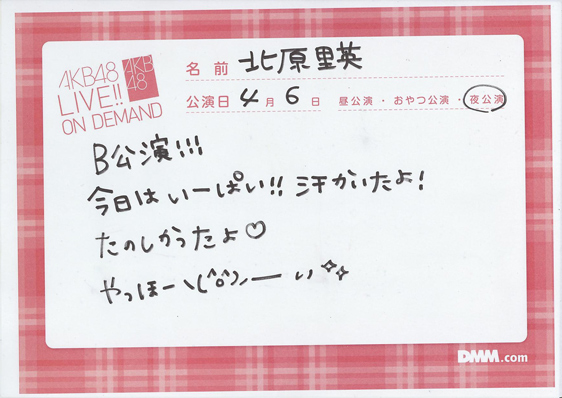 AKB48
LIVE!!
ON DEMAND
AKB
48
名前 北原里英
公演日 4月6日 昼公演・おやつ公演・夜公演
B公演!!!
今日はいーぱい!! 汗かいたよ!
たのしかったよ♡
やっほーヽ(^o^)ノーい✧✧
DMM.com